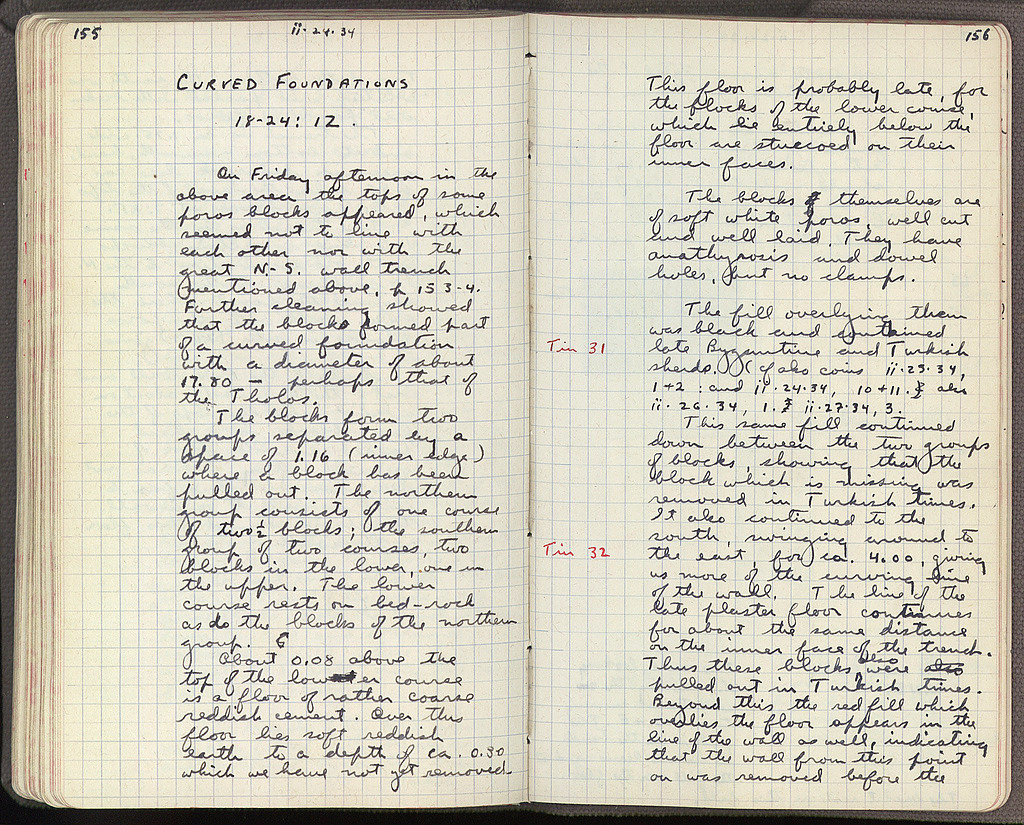 155
ii·24·34
CURVED FOUNDATIONS
18-24: 12.
On Friday afternoon in the
above area the tops of some
poros blocks appeared, which
seemed not to line with
each other nor with the
great N.-S. wall trench
mentioned above, p 153-4.
Further cleaning showed
that the blocks formed part
of a curved foundation
with a diameter of about
17.80 — perhaps that of
the Tholos.
The blocks form two
groups separated by a
space of 1.16 (inner edge)
where a block has been
pulled out. The northern
group consists of one course
of two ½ blocks; the southern
group of two courses, two
blocks in the lower, one in
the upper. The lower
course rests on bed-rock
as do the blocks of the northern
group.
About 0.08 above the
top of the lower course
is a floor of rather coarse
reddish cement. Over this
floor lies soft reddish
earth to a depth of ca. 0.30
which we have not yet removed
156
This floor is probably late, for
the blocks of the lower course,
which lie entirely below the
floor are stuccoed on their
inner faces.
The blocks themselves are
of soft white poros, well cut
and well laid. They have
anathyrosis and dowel
holes, but no clamps.
The fill overlying them
was black and contained
Tin 31
late Byzantine and Turkish
sherds. (cf also coins ii·25·34,
1+2 : and ii·24·34, 10+11. & also
ii·26·34, 1. & ii·27·34, 3.
This same fill continued
down between the two groups
of blocks, showing that the
block which is missing was
removed in Turkish times.
It also continued to the
south, swinging around to
Tin 32
the east, for ca. 4.00, giving
us more of the curving line
of the wall. The line of the
late plaster floor continues
for about the same distance
on the inner face of the trench.
Thus these blocks also were also
pulled out in Turkish times.
Beyond this the red fill which
overlies the floor appears in the
line of the wall as well, indicating
that the wall from this point
on was removed before the